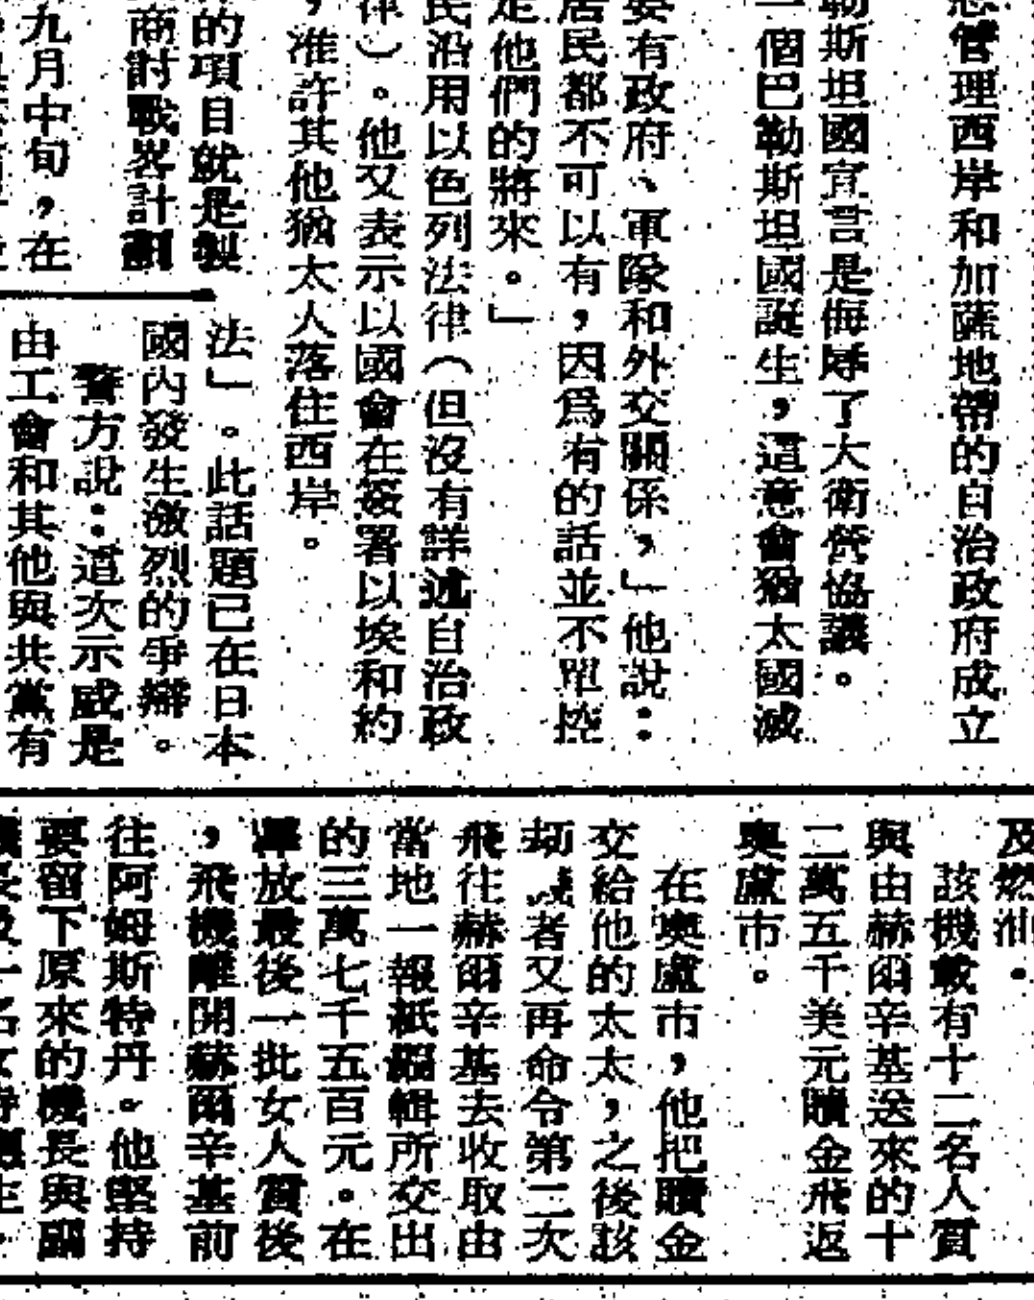 管理西岸和加薩地帶的自治政府成立
勒斯坦國宣言是侮辱了大衛營協議。
一個巴勒斯坦國誕生，這意會猶太國滅
要有政府、軍隊和外交關係，」他說：
居民都不可以有，因為有的話並不單控
是他們的將來。」
民沿用以色列法律（但沒有詳述自治政
律）。他又表示以國會在簽署以埃和約
，准許其他猶太人落住西岸。
的項目就是製
商討戰畧計劃
九月中旬，在
法」。此話題已在日本
國內發生激烈的爭辯。
警方說：這次示威是
由工會和其他與共黨有
及燃油。
該機載有十二名人質
與由赫爾辛基送來的十
二萬五千美元贖金飛返
奧盧市。
在奧盧市，他把贖金
交給他的太太，之後該
刼機者又再命令第二次
飛往赫爾辛基去收取由
當地一報紙編輯所交出
的三萬七千五百元。在
釋放最後一批女人質後
，飛機離開赫爾辛基前
往阿姆斯特丹。他堅持
要留下原來的機長與副